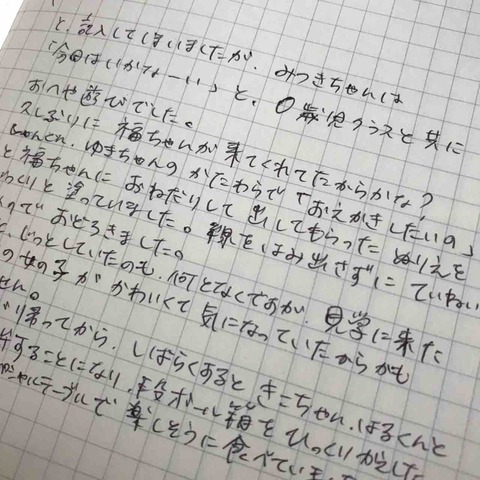 と、記入してしまいましたが、みつきちゃんは
「今日はいかなーい」と、0歳児クラスと共に
おへや遊びでした。
久しぶりに福ちゃんが来てくれてたからかな?
ゆきちゃんのかたわらで「おえかきしたいの」
と福ちゃんにおねだりして出してもらったぬりえを
っくりと塗っていました。線をはみ出さずにていねい
のでおどろきました。
じっとしていたのも、何となくですが、見学に来た
の女の子がかわいくて気になっていたからかも
せん。
帰ってから、しばらくするときこちゃん、はるくんと
することになり、段ボール箱をひっくりかえした
テーブルで楽しそうに食べていま